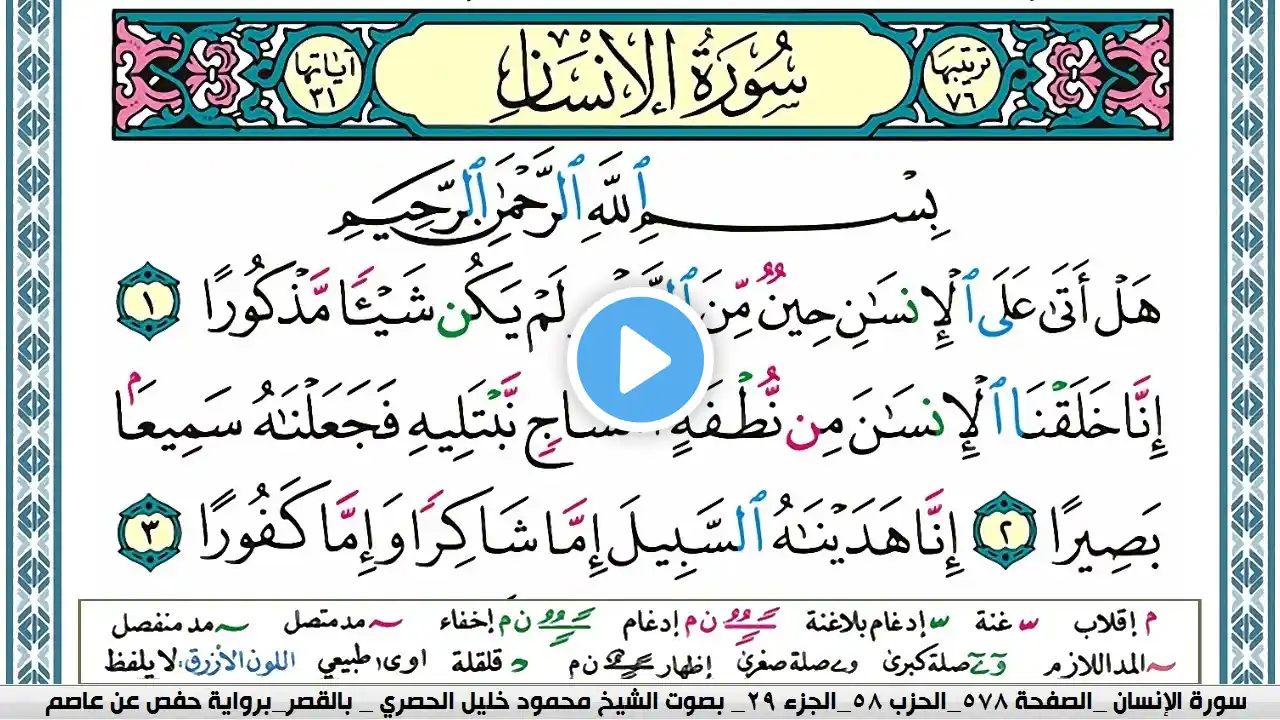 ترتيبها ٧٦
سُورَةُ الإِنسَانِ
آياتها ٣١
بِسْمِ ٱللَّهِ ٱلرَّحْمَٰنِ ٱلرَّحِيمِ
هَلْ أَتَىٰ عَلَى ٱلْإِنسَٰنِ حِينٌ مِّنَ لَمْ يَكُن شَيْـًٔا مَّذْكُورًا ١
إِنَّا خَلَقْنَا ٱلْإِنسَٰنَ مِن نُّطْفَةٍ نَّبْتَلِيهِ فَجَعَلْنَٰهُ سَمِيعًۢا
بَصِيرًا ٢ إِنَّا هَدَيْنَٰهُ ٱلسَّبِيلَ إِمَّا شَاكِرًا وَإِمَّا كَفُورًا ٣
م إقلاب غنة إدغام بلاغنة ن م إدغام ن م إخفاء مد متصل مد منفصل
المد اللازم صلة كبرى صلة صغرى إظهار ن م قلقلة اوى طبيعي اللون الأزرق: لا يلفظ
سورة الإنسان _الصفحة ٥٧٨_الحزب ٥٨_الجزء ٢٩_ بصوت الشيخ محمود خليل الحصري _ بالقصر_برواية حفص عن عاصم